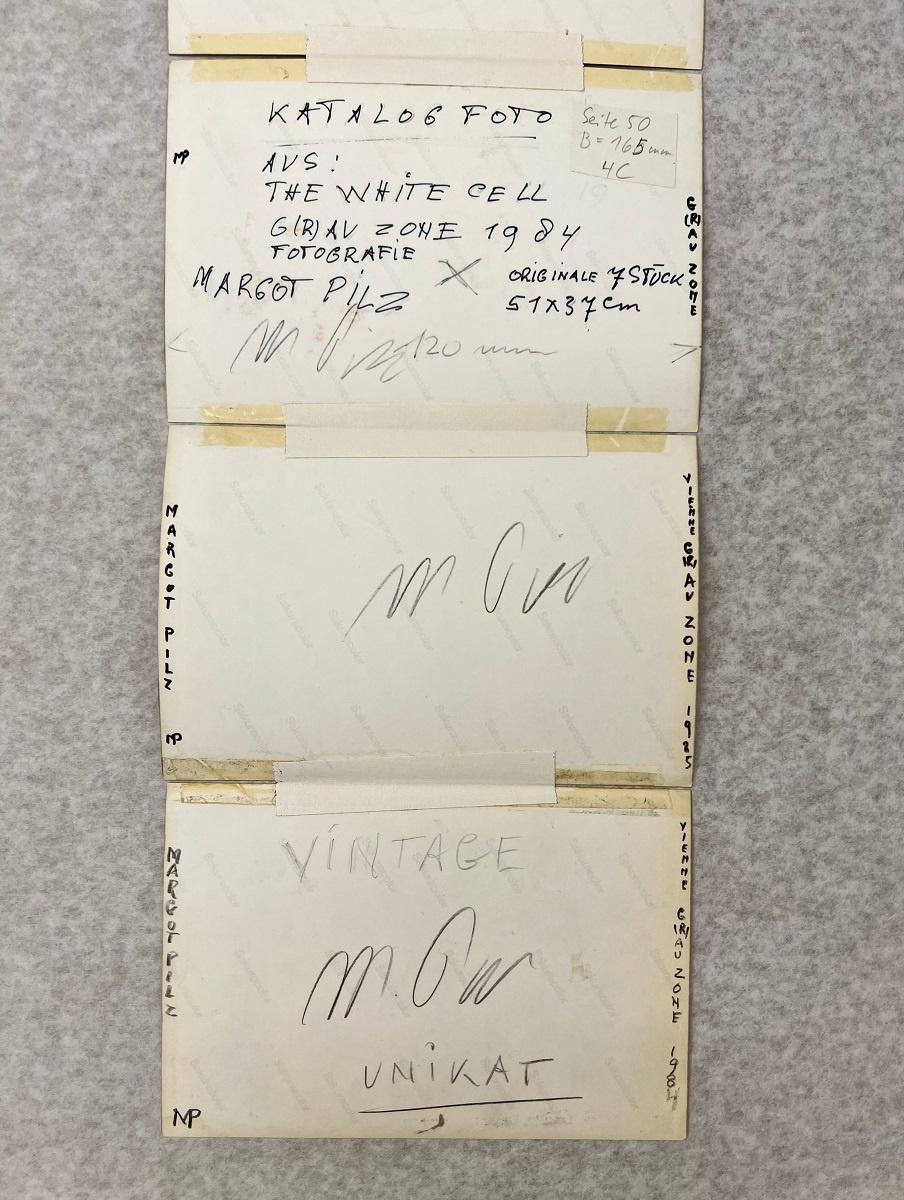 KATALOG FOTO
Seite 50
B = 165 mm
4C
MP
AUS:
THE WHITE CELL
G(R)AU ZONE 1984
FOTOGRAFIE
MARGOT PILZ
X
ORIGINALE 7 STÜCK
51x37cm
G(R)AU ZONE
M. Pilz
120 mm
MARGOT PILZ
MP
M. Pilz
VIENNE G(R)AU ZONE 1985
VINTAGE
MARGOT PILZ
M. Pilz
UNIKAT
MP
VIENNE G(R)AU ZONE 1984